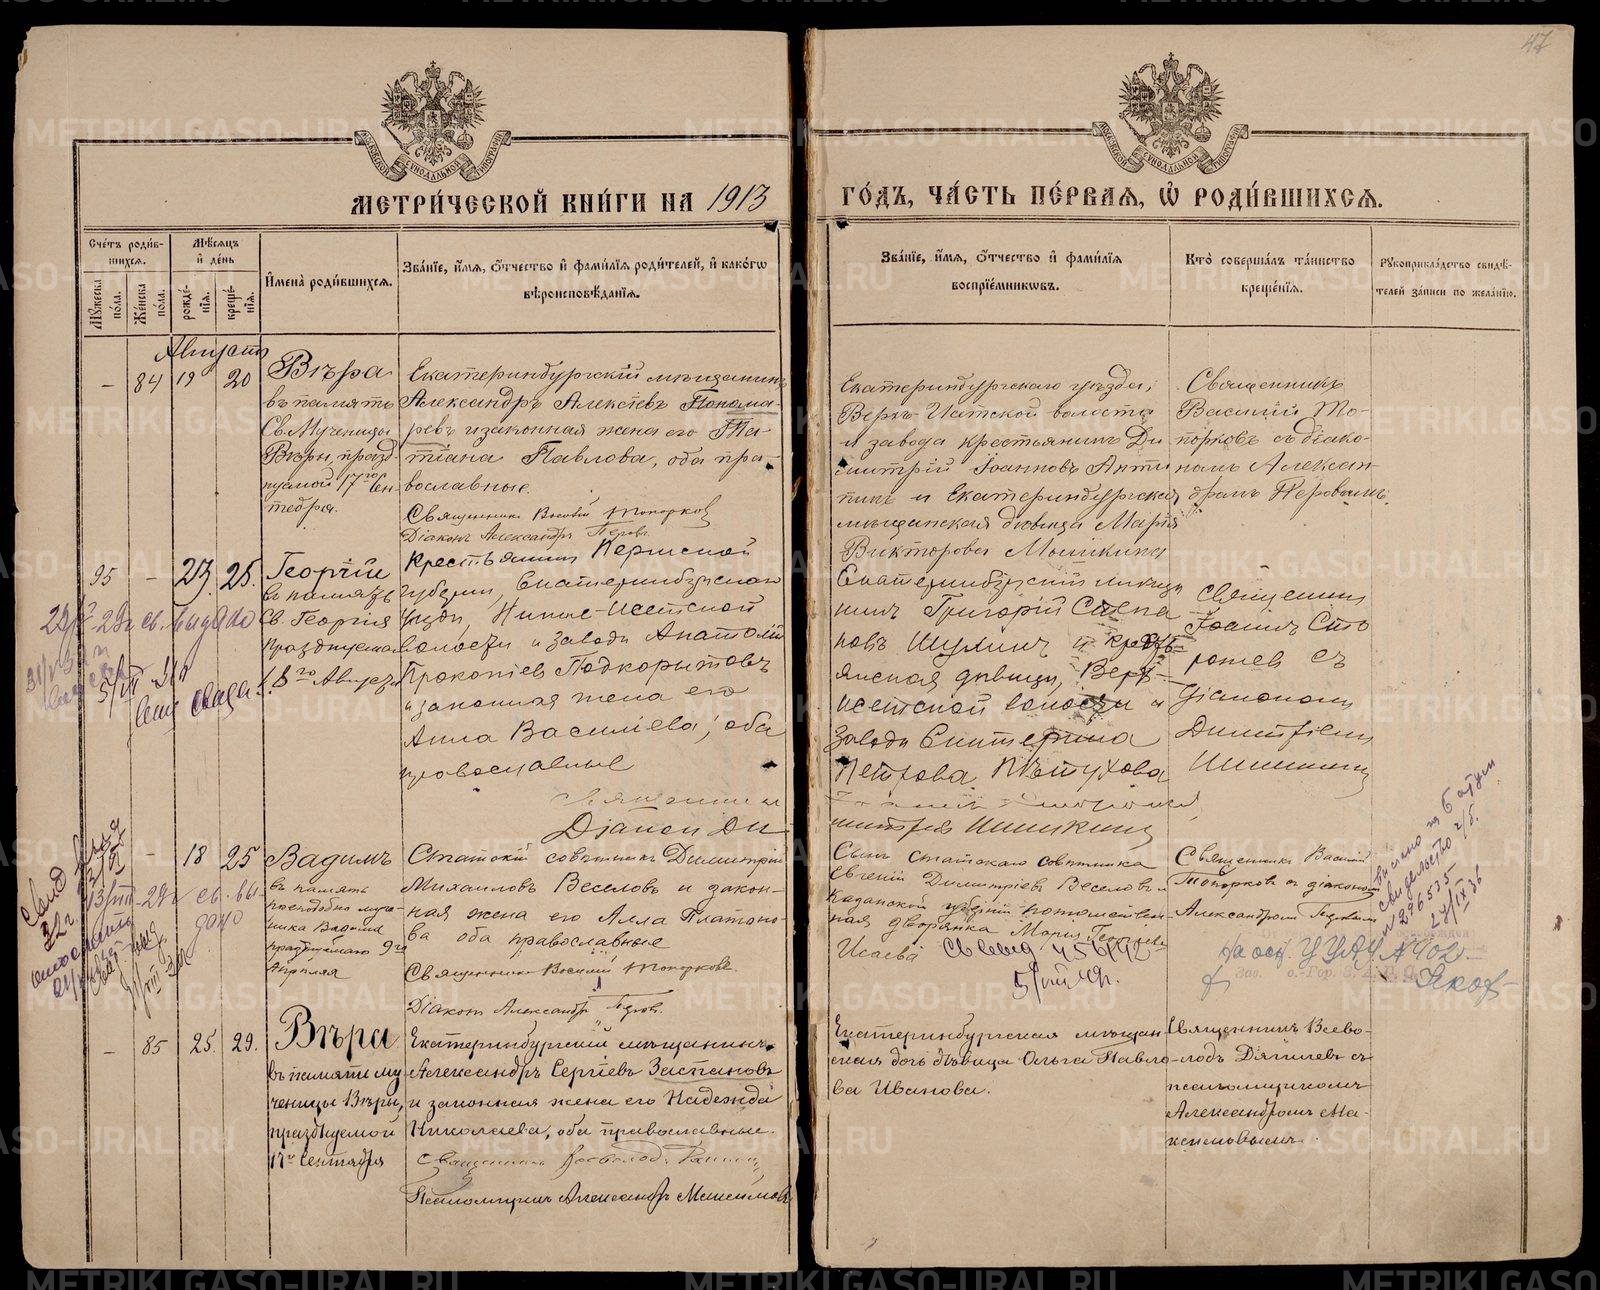 47
МЕТРИ́ЧЕСКОЙ КНИ́ГИ НА 1913
ГО́ДЪ, ЧА́СТЬ ПЕ́РВАЯ, Ѽ РОДИ́ВШИХСЯ.
Сче́тъ роди́в-
шихся.
Мꙋжеска по́ла.
Же́нска пола.
Мѣ́сяцъ
и҆ де́нь
рожде́-
нїя.
креще́-
нїя.
И҆мена̀ роди́вшихся.
Зва́нїе, и҆́мя, ѻ҆́тчество и҆ фами́лїя роди́телей, и҆ како́гѡ
вѣроисповѣ́данїя.
Зва́нїе, и҆́мя, ѻ҆́тчество и҆ фами́лїя
воспрїе́мникѡвъ.
Кто̀ соверша́лъ та́инство
креще́нїя.
Рꙋкоприкла́дство свидѣ́-
телей за́писи по жела́нїю.
Августъ
– 84 19 20
Вѣра
въ память
Св. Мученицы
Вѣры, празд-
нуемой 17го Сен-
тября.
Екатеринбургскій мѣщанинъ
Александръ Алексѣевъ Понома-
ревъ и законная жена его Та-
тіана Павлова, оба пра-
вославные.
Священникъ Василій Топорковъ
Діаконъ Александръ Перовъ
Екатеринбургскаго уѣзда,
Верхъ-Исетской волости
и завода крестьянинъ Ди-
митрій Іоанновъ Анти-
пинъ и Екатеринбургская
мѣщанская дѣвица Марія
Викторова Мышкина
Священникъ
Василій То-
порковъ съ діако-
номъ Алексан-
дромъ Перовымъ.
95 – 23. 25.
Георгій
въ память
Св. Георгія
празднуема
18го Августа
Крестьянинъ Пермской
губерніи, Екатеринбургскаго
уѣзда, Нижне-Исетской
волости и завода Анатолій
Прокопіевъ Подкорытовъ
и законная жена его
Анна Василіева, оба
православные
Священникъ
Діаконъ Ди-
Екатеринбургскій мѣща-
нинъ Григорій Степа-
новъ Шулинъ и кресть-
янская дѣвица, Верхъ-
Исетской волости и
завода Екатерина
Петрова Пѣтухова
митрій Шишкинъ
Священникъ
Іоаннъ Сто-
рожевъ съ
діакономъ
Димитріемъ
Шишкинымъ
– 18 25
Вадимъ
въ память
преподобно муче-
ника Вадима
празднуемаго 9го
Апрѣля
Статскій совѣтникъ Димитрій
Михаиловъ Веселовъ и закон-
ная жена его Алла Платоно-
ва оба православные
Священникъ Василій Топорковъ.
Діаконъ Александръ Перовъ.
Сынъ статскаго совѣтника
Евгеній Димитріевъ Веселовъ и
Казанской губерніи потомствен-
ная дворянка Марія Георгіева
Исаева
5/VIII 42г.
Священникъ Василій
Топорковъ съ діакономъ
Александромъ Перовымъ
– 85 25. 29.
Вѣра
въ память му-
ченицы Вѣры,
празднуемой
17го Сентября
Екатеринбургскій мѣщанинъ
Александръ Сергіевъ Застановъ
и законная жена его Надежда
Николаева, оба православные.
Псаломщикъ Александръ Максимовъ
Екатеринбургская мѣщан-
ская дочь дѣвица Ольга Павло-
ва Иванова.
Священникъ Всево-
лодъ Дягилевъ съ
псаломщикомъ
Александромъ Ма-
ксимовымъ.
METRIKI.GASO-URAL.RU